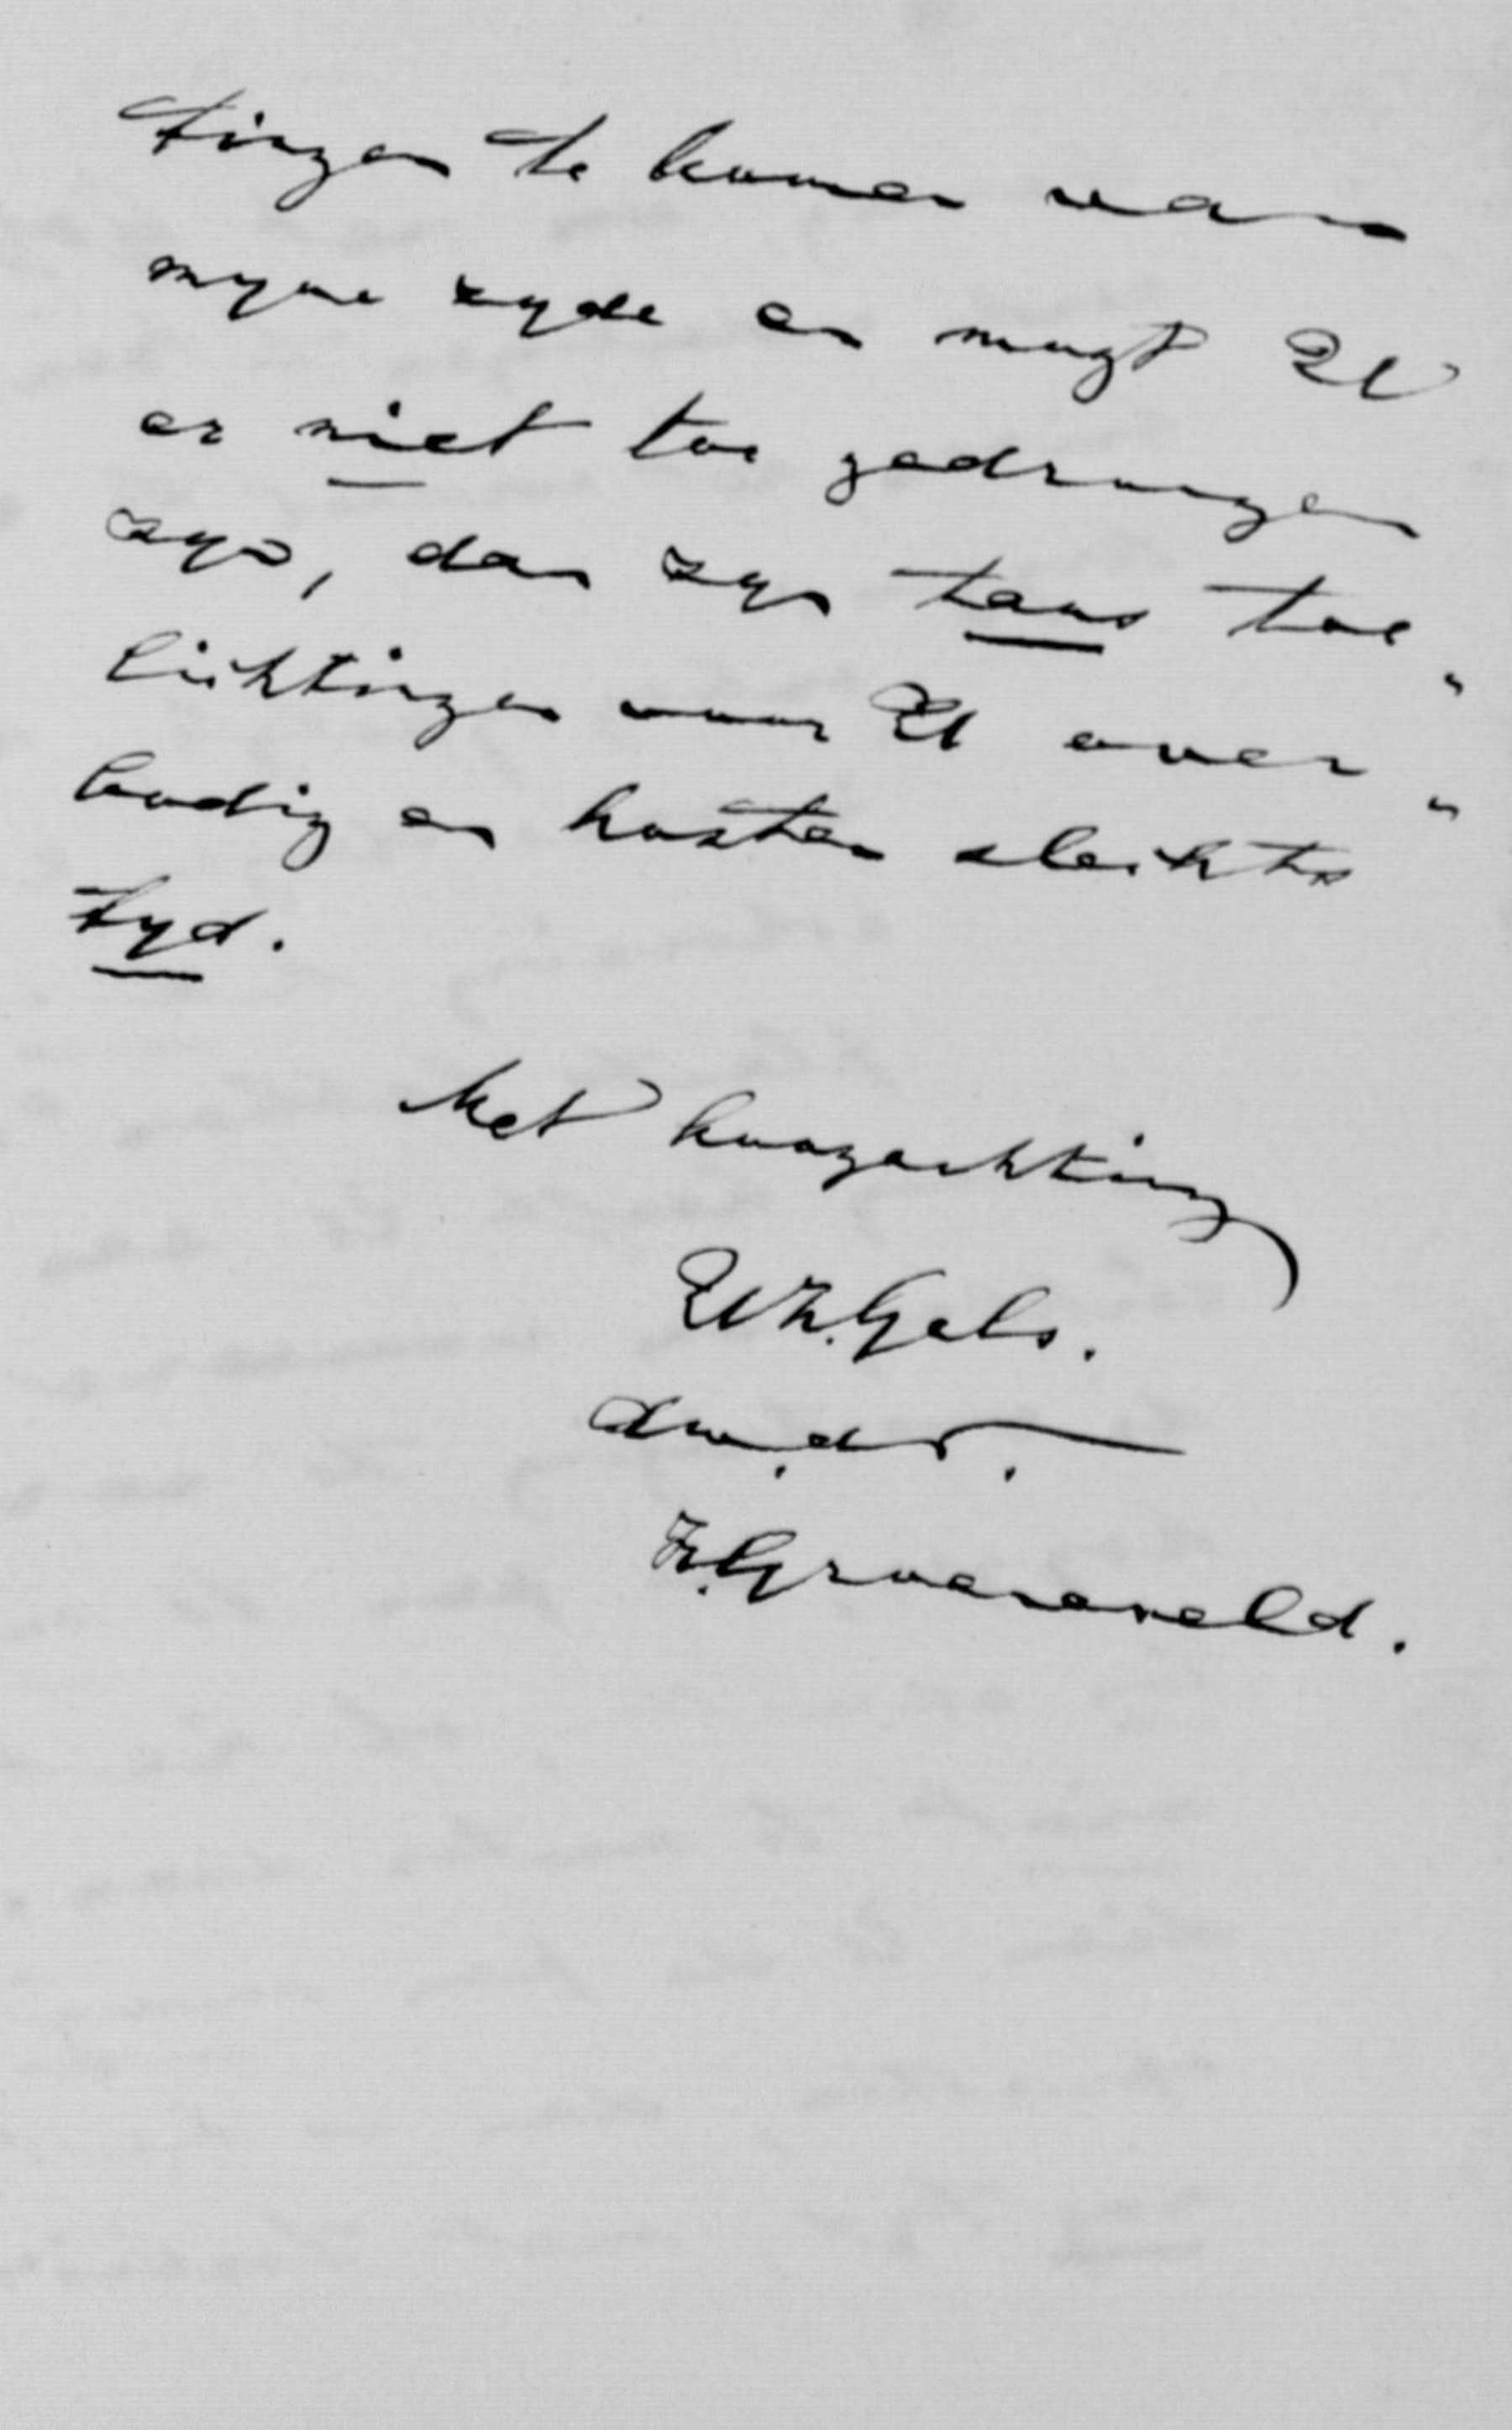 tingen te komen van
myne zyde en mogt U
er niet toe gedrongen
zyn, dan zyn tans toe„
lichtingen voor U over„
bodig en kosten slechts
tyd.
Met hoogachting
UEd.Gels.
dw.dr.
H. Groeneveld.